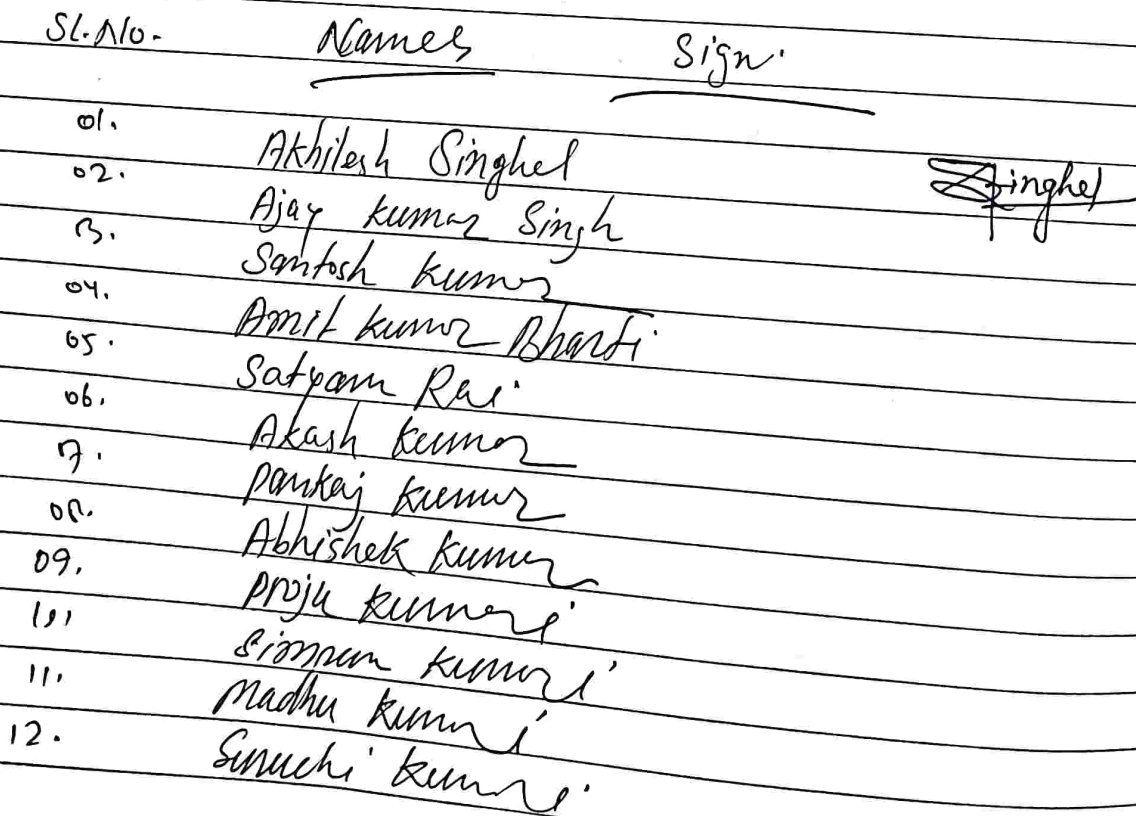 Sl. No. Names Sign.
01. Akhilesh Singhel Singhel
02. Ajay Kumar Singh
03. Santosh Kumar
04. Amit Kumar Bharti
05. Satyam Rai
06. Akash Kumar
07. Pankaj Kumar
08. Abhishek Kumar
09. Kumari
10. Simran Kumari
11. Madhu Kumari
12. Suruchi Kumari